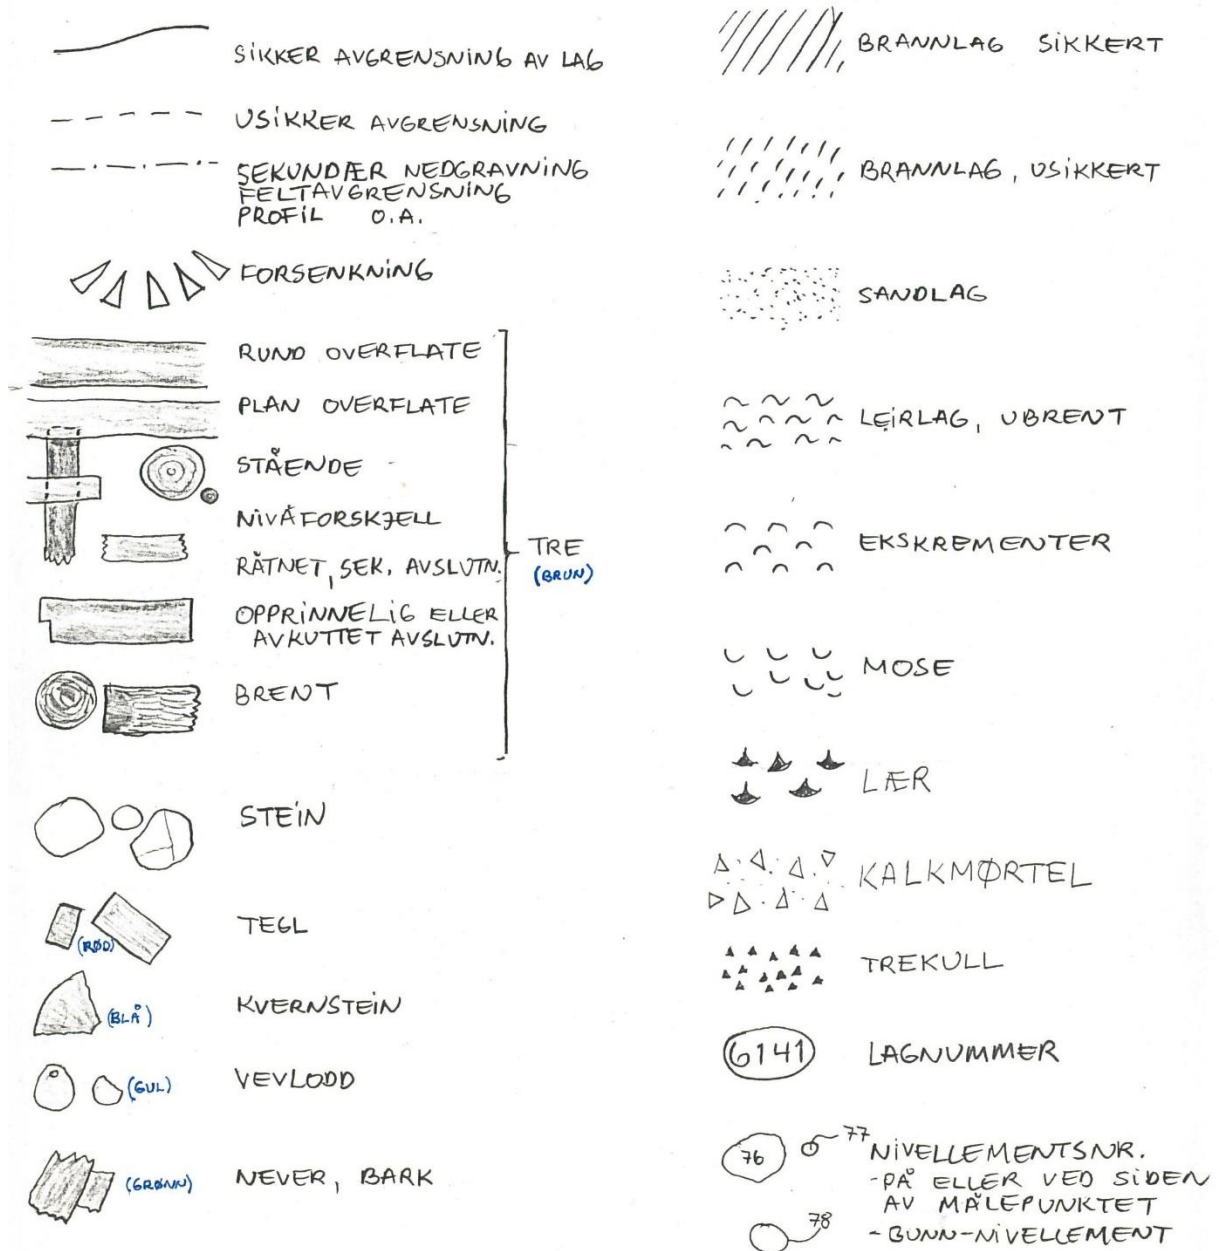 SIKKER AVGRENSNING AV LAG
USIKKER AVGRENSNING
SEKUNDÆR NEDGRAVNING
FELTAVGRENSNING
PROFIL O.A.
FORSENKNING
RUND OVERFLATE
PLAN OVERFLATE
STÅENDE
NIVÅFORSKJELL
RÅTNET, SEK. AVSLUTN.
OPPRINNELIG ELLER
AVKUTTET AVSLUTN.
BRENT
TRE
(BRUN)
STEIN
TEGL
(RØD)
KVERNSTEIN
(BLÅ)
VEVLODD
(GUL)
NEVER, BARK
(GRØNN)
BRANNLAG SIKKERT
BRANNLAG, USIKKERT
SANDLAG
LEIRLAG, UBRENT
EKSKREMENTER
MOSE
LÆR
KALKMØRTEL
TREKULL
6141 LAGNUMMER
76 77 NIVELLEMENTSNR.
-PÅ ELLER VED SIDEN
AV MÅLEPUNKTET
78 - BUNN-NIVELLEMENT